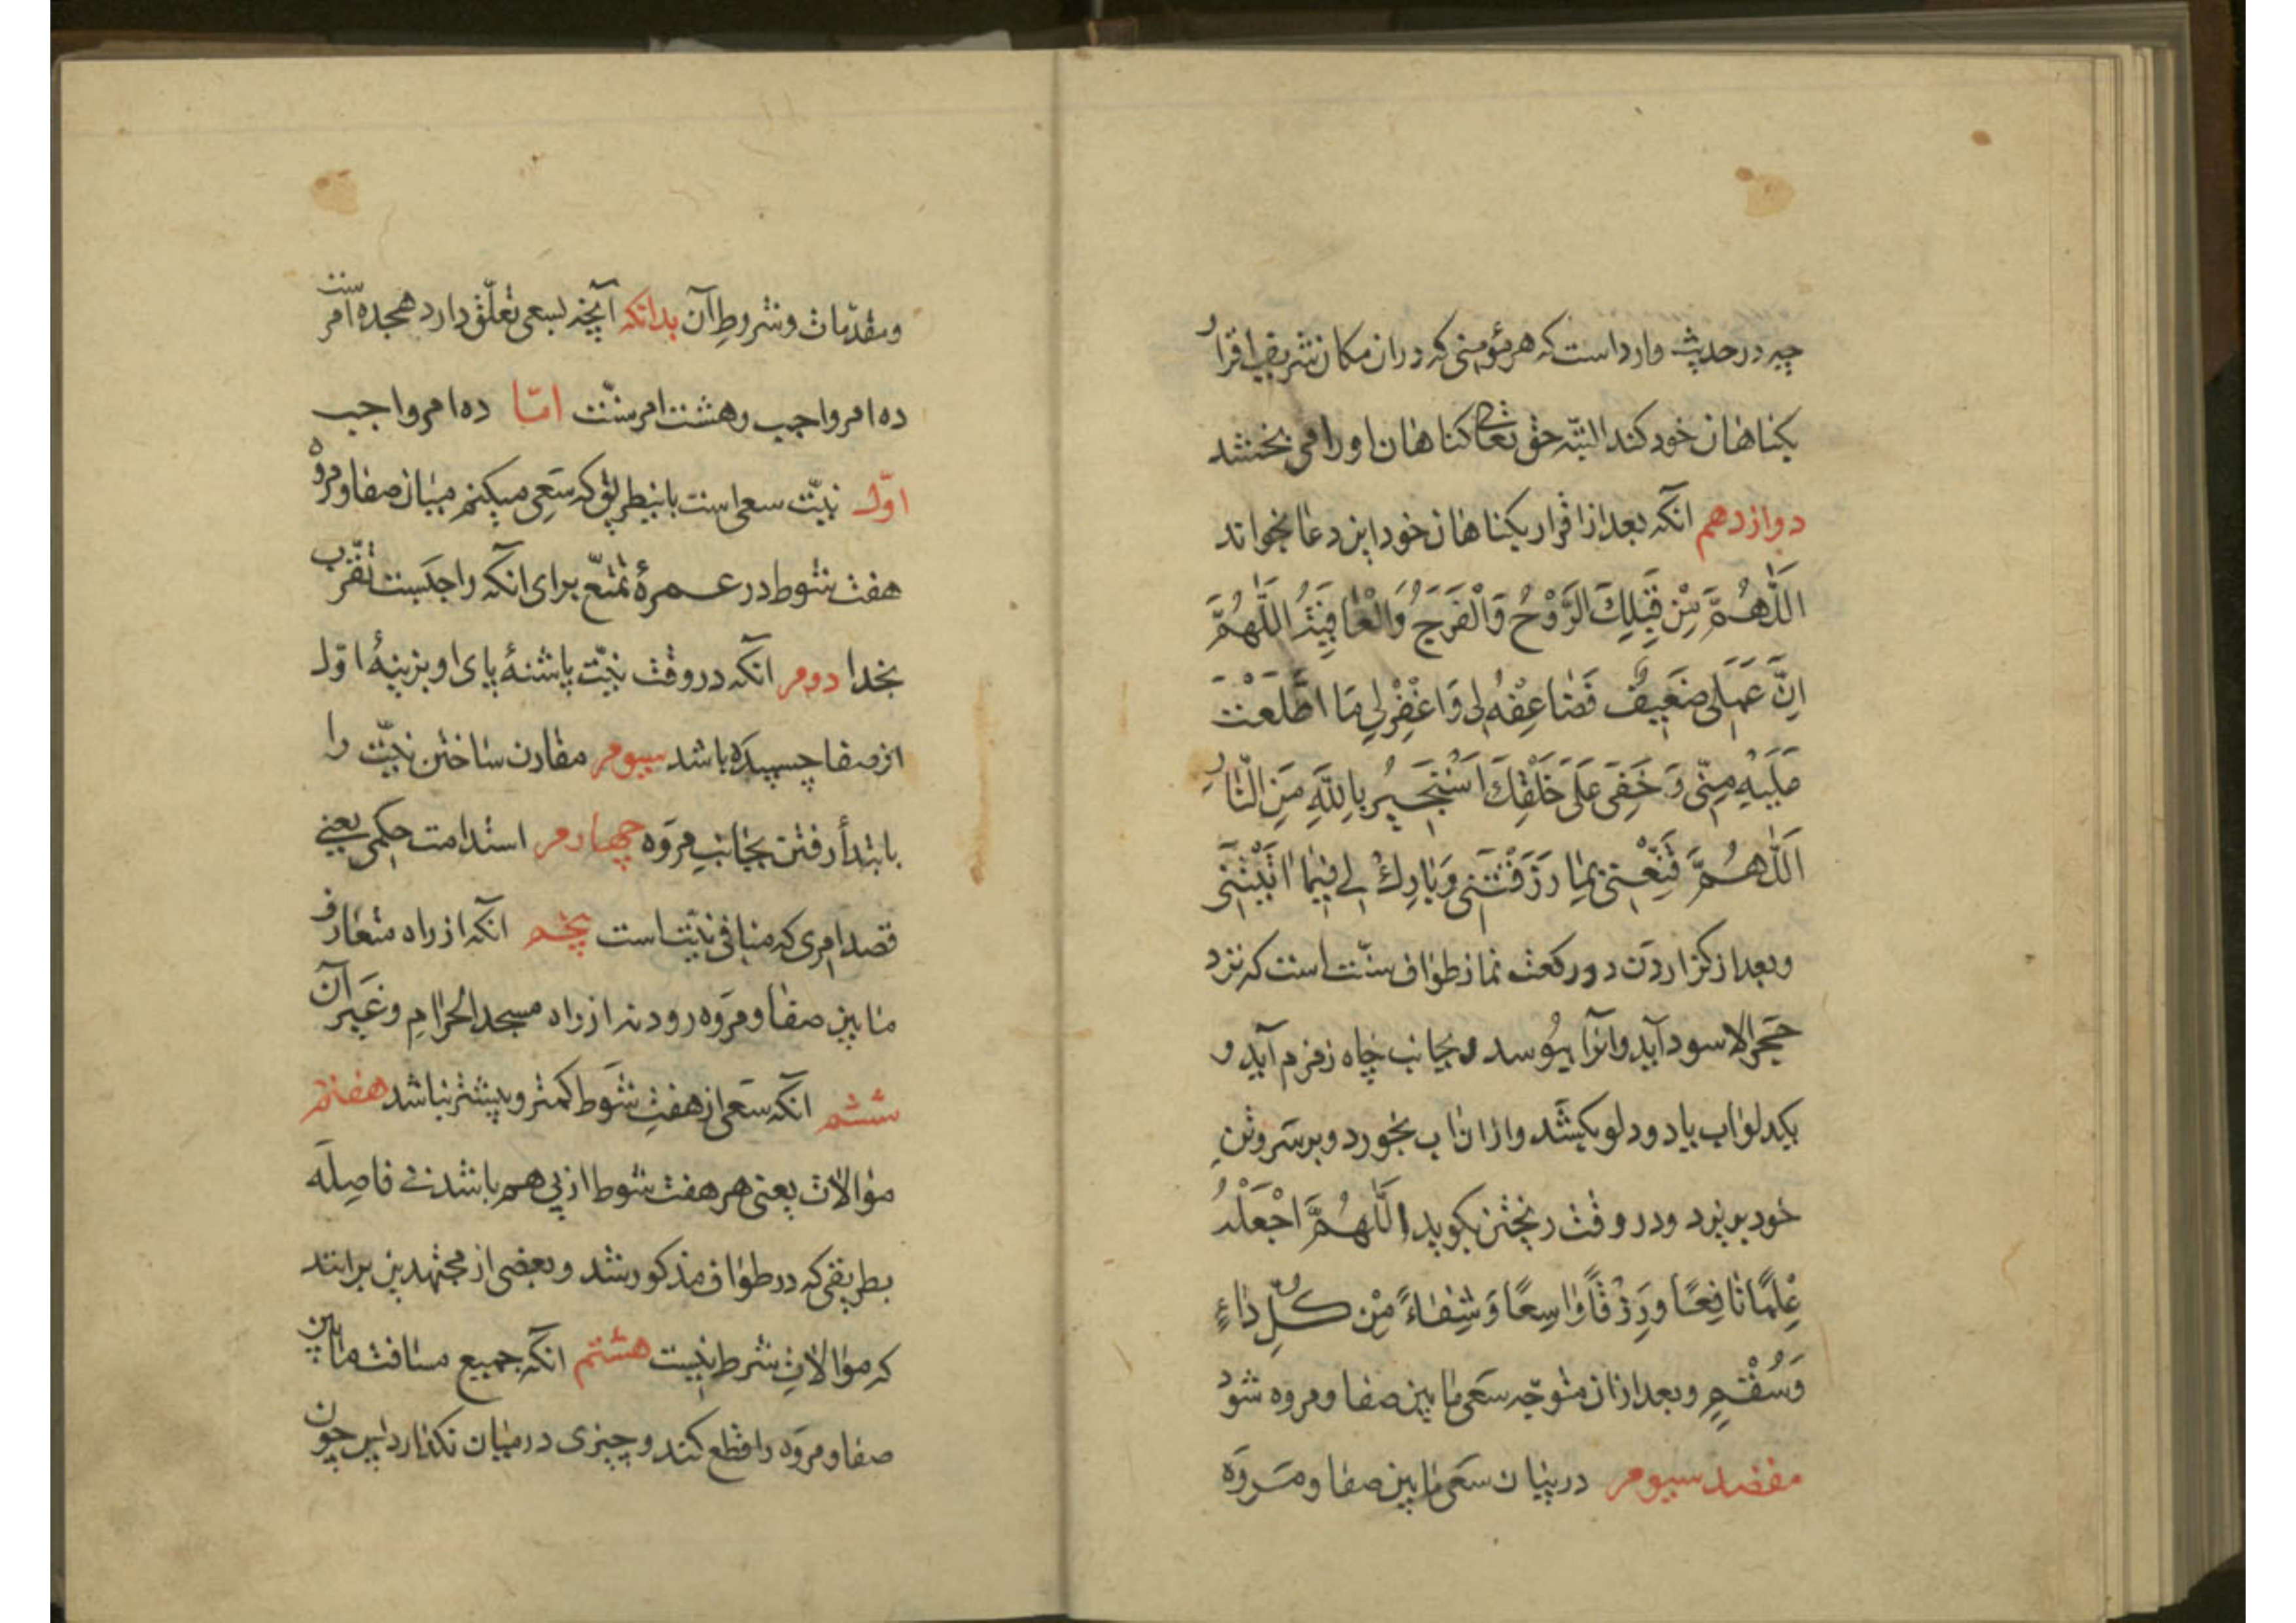 چه در حدیث وارد است که هر مؤمنی که در ان مکان شریف اقرار
بکناهان خود کند البتّه حق تعالی کناهان او را می بخشد
دوازدهم انکه بعد از اقرار بکناهان خود این دعا بخواند
اَللّٰهُمَّ مِنْ قِبَلِكَ الرَّوْحُ وَالْفَرَجُ وَالْعٰافِیَةُ اَللّٰهُمَّ
اِنَّ عَمَلی ضَعیفٌ فَضٰاعِفْهُ لی وَاغْفِرْ لی مَا اطَّلَعْتَ
عَلَیْهِ مِنّی وَ خَفِیَ عَلیٰ خَلْقِكَ اَسْتَجیرُ بِاللّٰهِ مِنَ النّٰارِ
اَللّٰهُمَّ قَنِّعْنی بِمٰا رَزَقْتَنی وَبٰارِكْ لی فیمٰا اٰتَیْتَنی
وبعد از کزاردن دو رکعت نماز طواف سنّت است که نزد
حجر الاسود آید وانرا ببوسد و بجانب چاه زمزم آید و
یکدلو اب یا دو دلو بکشد و از ان اب بخورد و بر سر و تن
خود بریزد ودر وقت ریختن بکوید اَللّٰهُمَّ اجْعَلْهُ
عِلْمًا نٰافِعًا وَرِزْقًا وٰاسِعًا وَشِفٰاءً مِنْ كُلِّ دٰاءٍ
وَسُقْمٍ وبعد از ان متوجّه سعی ما بین صفا ومروه شود
مقصد سیوم در بیان سعی ما بین صفا ومروه
ومقدّمات وشروط آن بدانکه آنچه بسعی تعلّق دارد هجده امر است
ده امر واجب وهشت امر سنّت امّا ده امر واجب
اوّل نیّت سعی است باینطریق که سعی میکنم میان صفا ومروه
هفت شوط در عمرهٔ تمتّع برای انکه واجبست تقرّب
بخدا دوم انکه در وقت نیّت پاشنهٔ پای او بزینهٔ اوّل
از صفا چسپیده باشد سیوم مقارن ساختن نیّت را
بابتدأ رفتن بجانب مروه چهارم استدامت حکمی یعنی
قصد امری که منافی نیّت است پنجم انکه از راه متعارف
ما بین صفا ومروه رود نه از راه مسجد الحرام وغیر آن
ششم انکه سعی از هفت شوط کمتر وبیشتر نباشد هفتم
موالات یعنی هر هفت شوط از پی هم باشد بی فاصله
بطریقی که در طواف مذکور شد وبعضی از مجتهدین برانند
که موالات شرط نیست هشتم انکه جمیع مسافت ما بین
صفا ومروه را قطع کند وچیزی در میان نکذارد پس چون